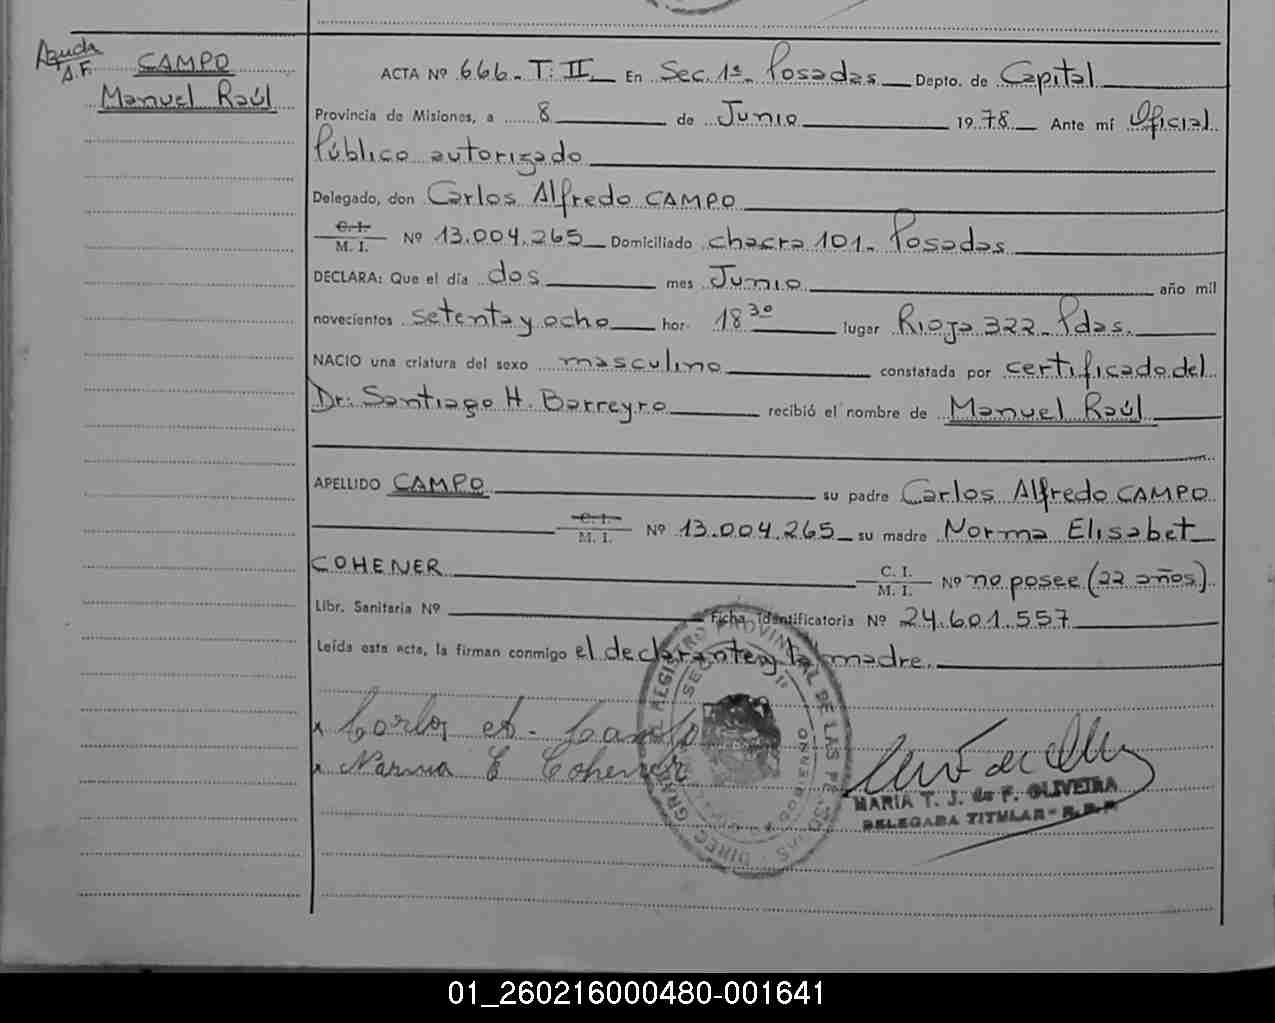 Aguda
A.F.
CAMPO
Manuel Raúl
ACTA Nº 666 - T. II - En Sec. 1ª Posadas - Depto. de Capital
Provincia de Misiones, a 8 de Junio 1978 Ante mí Oficial
Público autorizado
Delegado, don Carlos Alfredo CAMPO
C. I.
M. I. Nº 13.004.265 Domiciliado chacra 101 - Posadas
DECLARA: Que el día dos mes Junio año mil
novecientos setenta y ocho hor. 18 30 lugar Rioja 322 - Pdas.
NACIO una criatura del sexo masculino constatada por certificado del
Dr. Santiago H. Barreyro recibió el nombre de Manuel Raúl
APELLIDO CAMPO su padre Carlos Alfredo CAMPO
C. I.
M. I. Nº 13.004.265 su madre Norma Elisabet
COHENER C. I.
M. I. Nº no posee (22 años)
Libr. Sanitaria Nº Ficha Identificatoria Nº 24.601.557
Leída esta acta, la firman conmigo el declarante y la madre.
Carlos A. Campo
Norma E Cohener
MARIA T. J. de F. OLIVEIRA
DELEGADA TITULAR - R.P.P
01_260216000480-001641